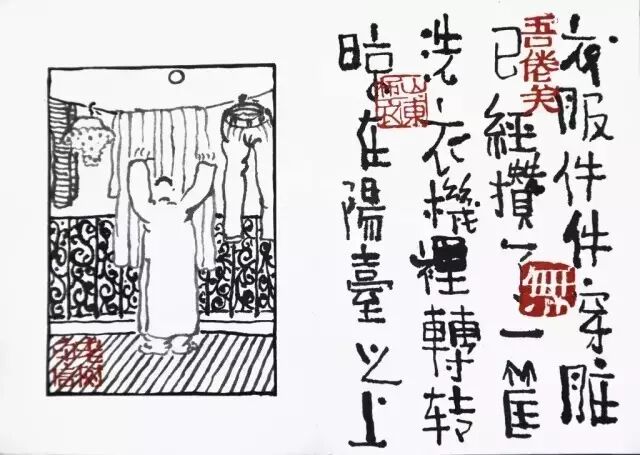 衣服件件穿脏
已經攢了一筐
洗衣機裡轉转
晾在陽臺之上
吾倦矣
山東布衣
無
老树